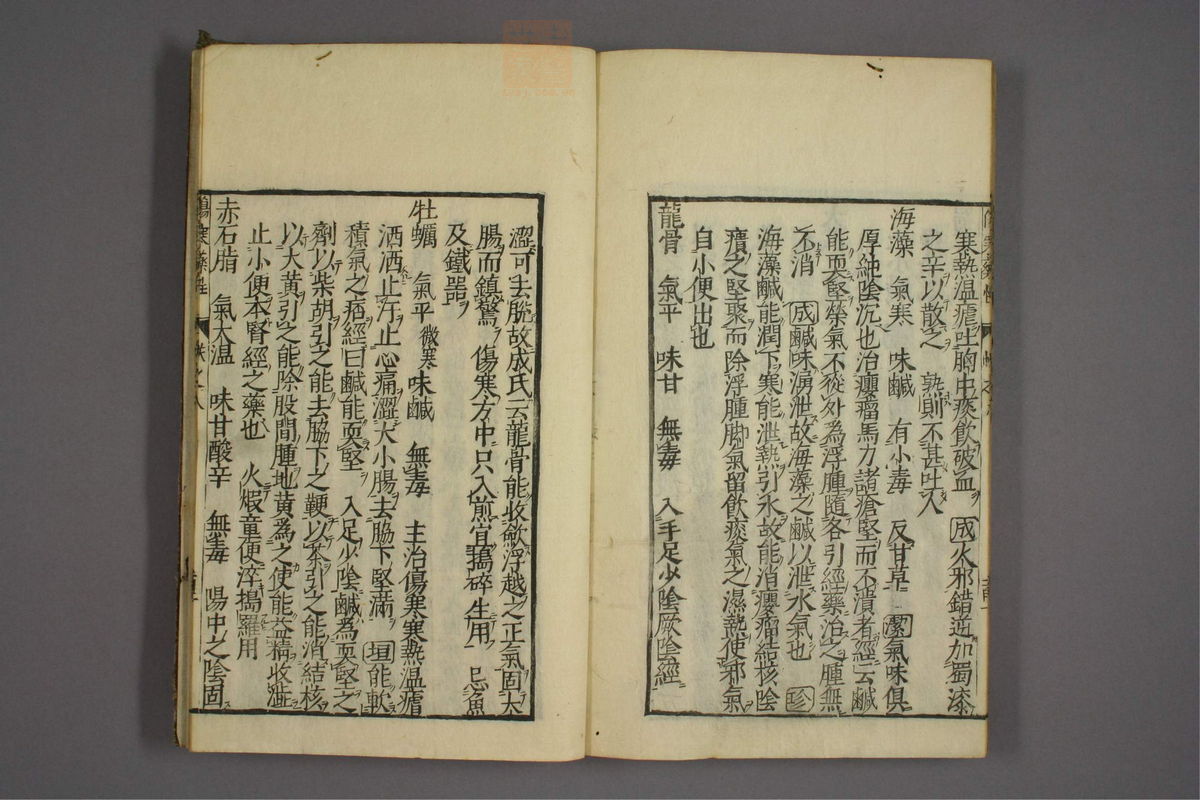 寒熱温瘧吐胸中痰飲破血　成火邪錯逆加蜀漆
之辛以散之　熟則不甚吐人
海藻　氣寒　味鹹　有小毒　反甘草　潔氣味俱
厚純陰沉也治癭瘤馬刀諸瘡堅而不潰者經云鹹
能耎堅榮氣不從外為浮腫隨各引經藥治之腫無
不消　成鹹味涌泄故海藻之鹹以泄水氣也　珍
海藻鹹能潤下寒能泄熱引水故能消癭瘤結核陰
㿉之堅聚而除浮腫脚氣留飲痰氣之濕熱使邪氣
自小便出也
龍骨　氣平　味甘　無毒　入手足少陰厥陰經
澀可去脫故成氏云龍骨能收斂浮越之正氣固大
腸而鎮驚　傷寒方中只入煎宜搗碎生用　忌魚
及鐵器
牡蠣　氣平微寒　味鹹　無毒　主治傷寒寒熱温瘧
洒洒止汗止心痛澀大小腸去脇下堅滿　垣能軟
積氣之痞經曰鹹能耎堅　入足少陰鹹為耎堅之
劑以柴胡引之能去脇下之鞕以茶引之能消結核
以大黃引之能除股間腫地黃為之使能益精收澁
止小便本腎經之藥也　火煅童便淬搗羅用
赤石脂　氣大温　味甘酸辛　無毒　陽中之陰固